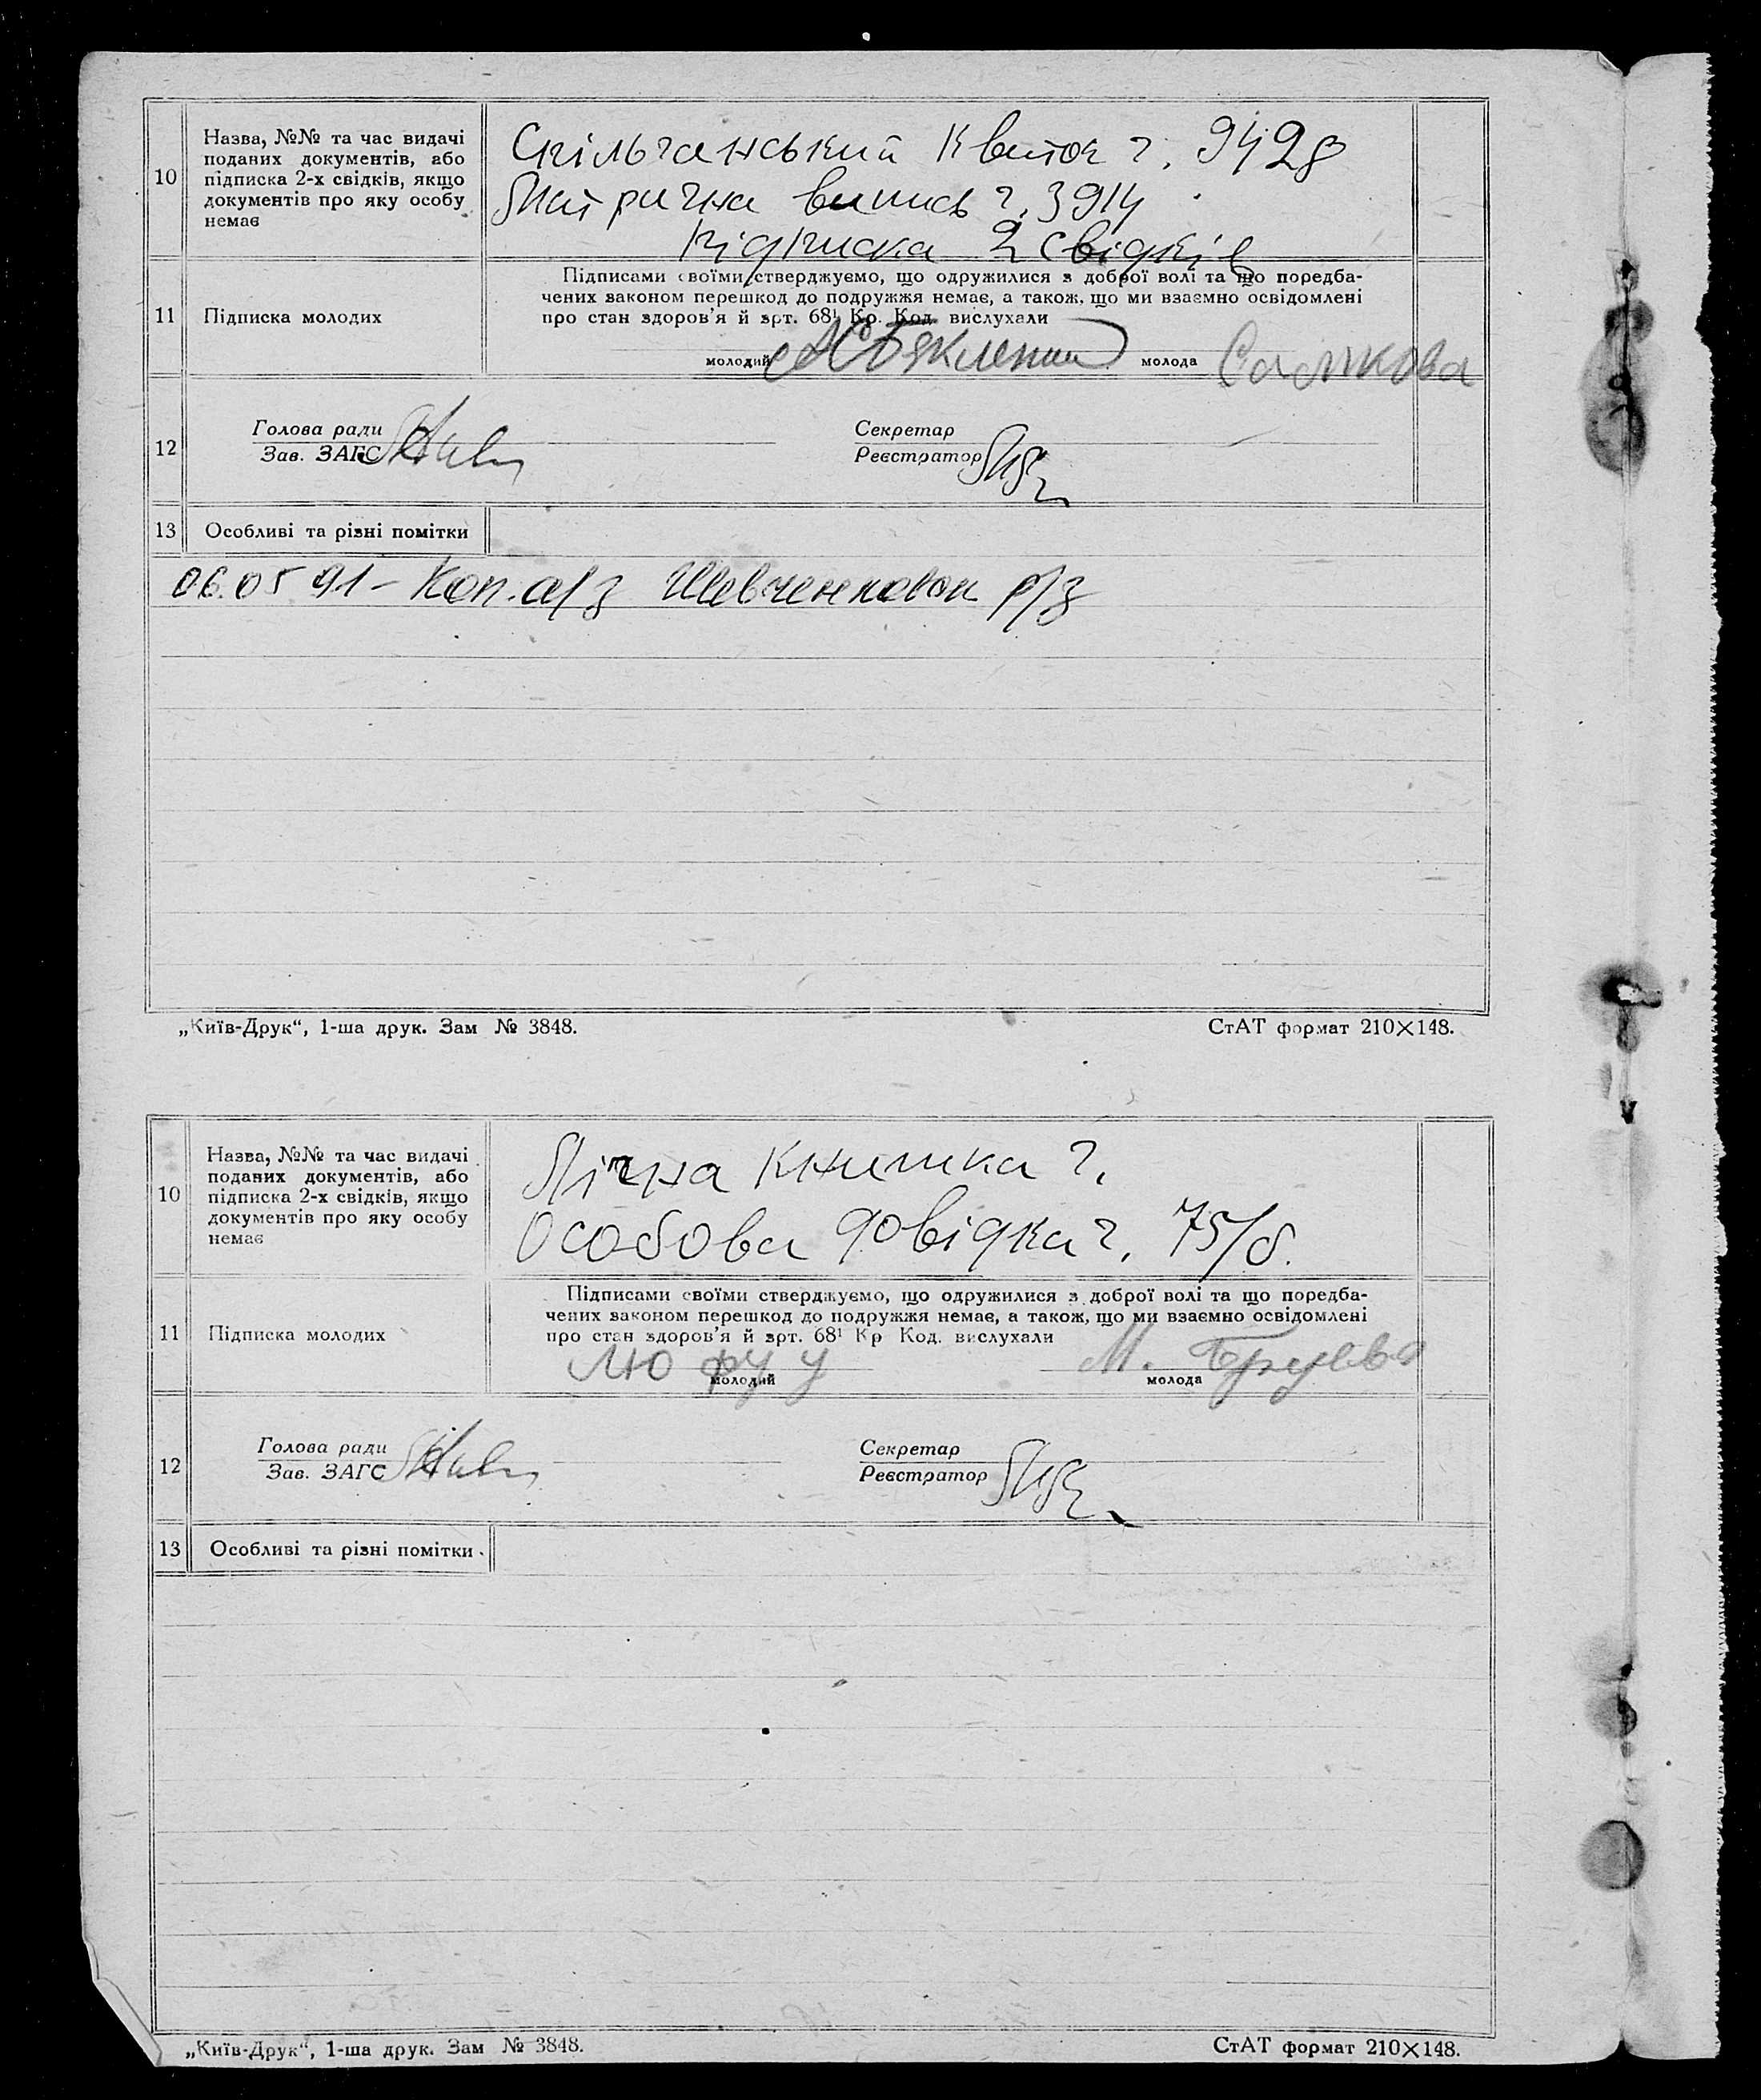 10
Назва, №№ та час видачі
поданих документів, або
підписка 2-х свідків, якщо
документів про яку особу
немає
Спільчанський квиток ч. 9428
Метрична випись ч. 3914
підписка 2 свідків
11
Підписка молодих
Підписами своїми стверджуємо, що одружилися з доброї волі та що поредба-
чених законом перешкод до подружжя немає, а також, що ми взаємно освідомлені
про стан здоров'я й арт. 68¹ Кр. Код. вислухали
молодий
молода Салікова
12
Голова ради
Зав. ЗАГС
Секретар
Реєстратор
13
Особливі та різні помітки
06.05 91 – Коп. а/з Шевченковск р/з
„Київ-Друк“, 1-ша друк. Зам № 3848.
СтАТ формат 210×148.
10
Назва, №№ та час видачі
поданих документів, або
підписка 2-х свідків, якщо
документів про яку особу
немає
Лічна книжка ч.
Особова довідка ч. 75/б.
11
Підписка молодих
Підписами своїми стверджуємо, що одружилися з доброї волі та що поредба-
чених законом перешкод до подружжя немає, а також, що ми взаємно освідомлені
про стан здоров'я й арт. 68¹ Кр Код. вислухали
Лю фу у
М.
молодий
молода
12
Голова ради
Зав. ЗАГС
Секретар
Реєстратор
13
Особливі та різні помітки
„Київ-Друк“, 1-ша друк. Зам № 3848.
СтАТ формат 210×148.